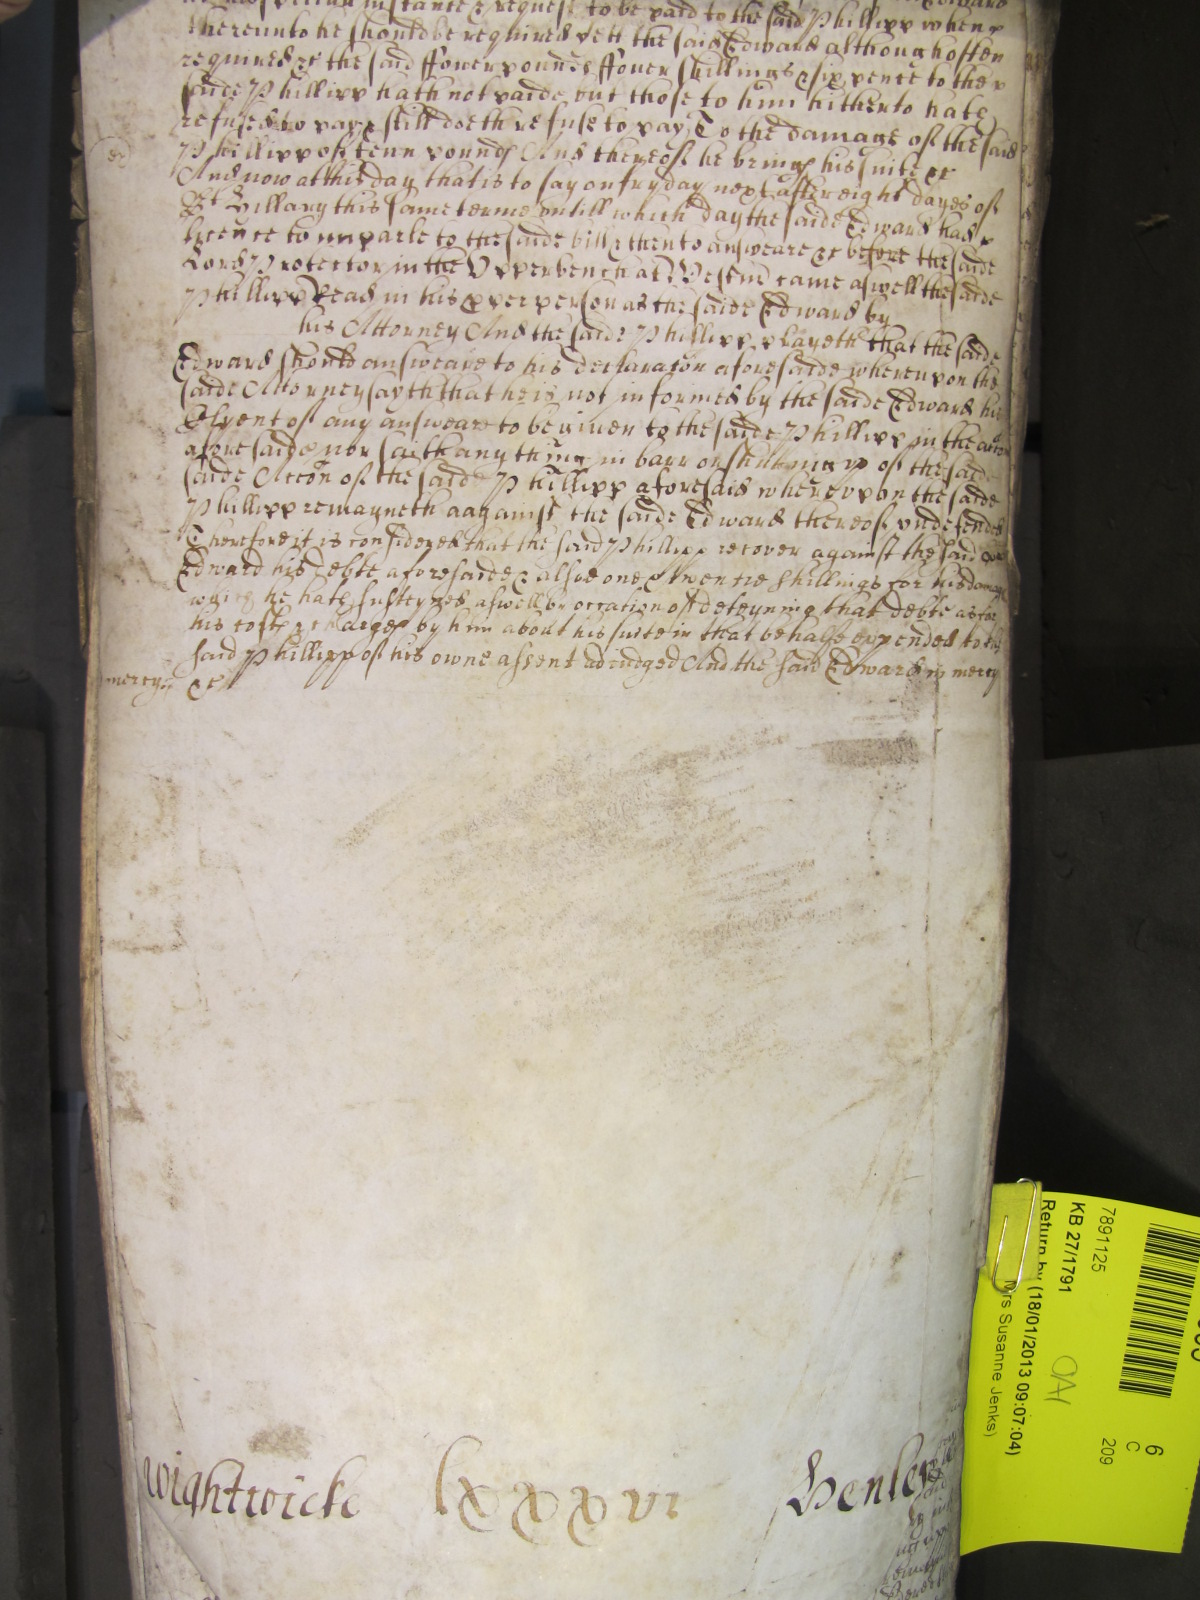 instance & request to be paid to the said Phillipp when
thereunto he should be required yett the said Edward although often
required &c the said ffower pounds ffower shillings & six pence to the
said Phillipp hath not paide but those to him hitherto hath
refused to pay & still doeth refuse to pay To the damage of the said
Phillipp of tenn pounds And thereof he brings his suite &c
And now at this day that is to say on fryday next after eight dayes of
St Hillary this same terme untill which day the saide Edward had
licence to imparle to the saide bill & then to answeare &c before the saide
Lord Protector in the Upper bench at Westmr came aswell the saide
Phillipp Read in his proper person as the saide Edward by
his Attorney And the saide Phillipp prayeth that the saide
Edward should answeare to his declaracon aforesaide whereupon the
saide Attorney sayth that he is not informed by the saide Edward his
Clyent of any answeare to be given to the saide Phillipp in the accon
aforesaide nor saith any thing in barr or of the said
saide Accon of the saide Phillipp aforesaid whereupon the saide
Phillipp remayneth aagainst the saide Edward thereof undefended
Therefore it is considered that the said Phillipp recover against the said
Edward his debte aforesaide & alsoe one & twentie shillings for his damages
which he hath susteyned aswell by occation of deteyning that debte as for
his costs & charges by him about his suite in that behalfe expended to the
said Phillipp of his owne assent adiudged And the said Edward in mercy
mercy &c
Wightwicke lxxxvi Henley
7891125
KB 27/1791
Return by (18/01/2013 09:07:04)
Mrs Susanne Jenks)
6
C
209